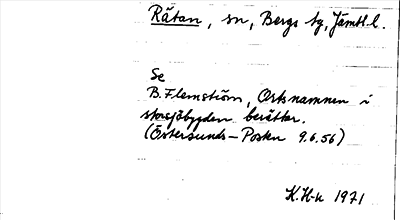 Rätan, sn, Bergs tg, Jämtl.l.
Se
B. Flemström, Ortsnamnen i
storsjöbygden berättar.
(Östersunds-Posten 9.6.56)
K.H-k 1971